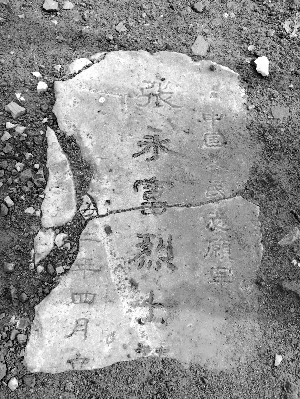 中国人民志愿军
张永富烈士
年四月